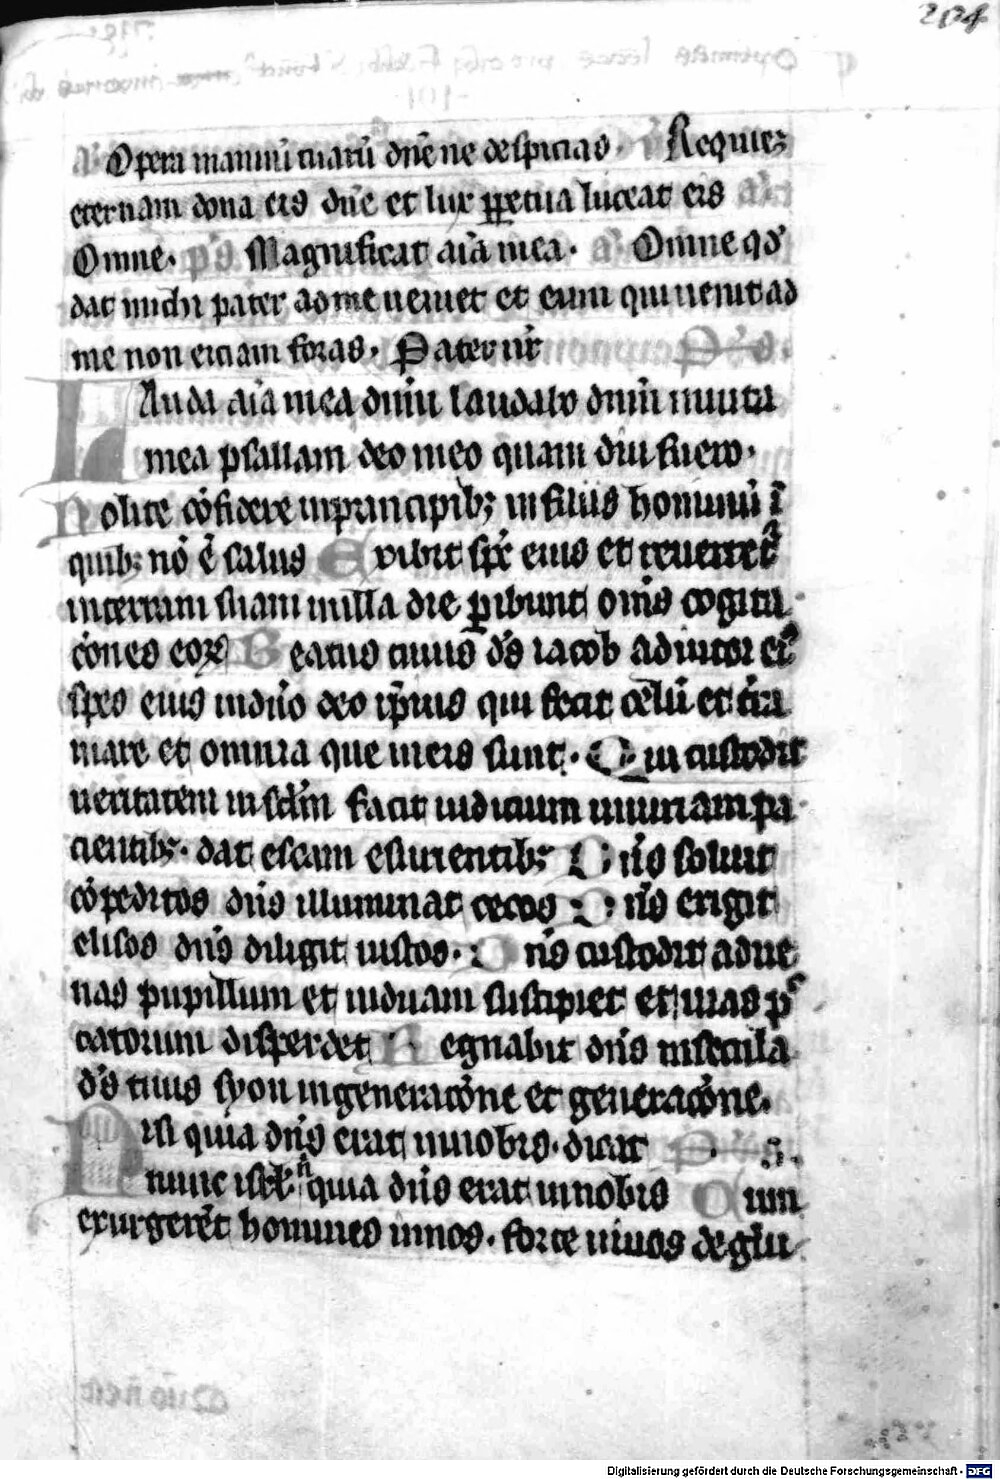 204
Opera manuū tuarū dn̄e ne despicias. Requiē
eternam dona eis dn̄e et lux ꝑpetua luceat eis
Omne. pͫs Magnificat aīa mea. aͣ Omne qd̕
dat michi pater ad me ueniet et eum qui uenit ad
me non eiciam foras. Pater nr̄ p̄s.
Lauda aīa mea dnm̄ laudabo dnm̄ in uita
mea psallam deo meo quam diu fuero.
Nolite cōfidere in principibꝫ in filiis hominū ī
quibꝫ nō ē salus Exibit spc̄ eius et reuertet᷑
in terram suam in illa die ꝑibunt om̄s cogita
cōnes eoꝝ Beatus cuius ds̄ iacob adiutor ei᷒
spes eius in dn̄o deo ip̄ius qui fecit celū et tr̄a
mare et omnia que in eis sunt. Qui custodit
ueritatem in sclm̄ facit iudicium iniuriam pa
cientibꝫ. dat escam esurientibꝫ Dn̄s soluit
cōpeditos dn̄s illuminat cecos Dn̄s erigit
elisos dn̄s diligit iustos. Dn̄s custodit adue
nas pupillum et uiduam suscipiet et uias pc̄
catorum disperdet Regnabit dn̄s in secula
ds̄ tuus syon in generacōne et generacōne.
Nisi quia dn̄s erat in nobis. dicat p̄s.
nunc isrl̄. n̄ quia dn̄s erat in nobis Cum
exurgerēt homines in nos. forte uiuos deglu
Digitalisierung gefördert durch die Deutsche Forschungsgemeinschaft - DFG